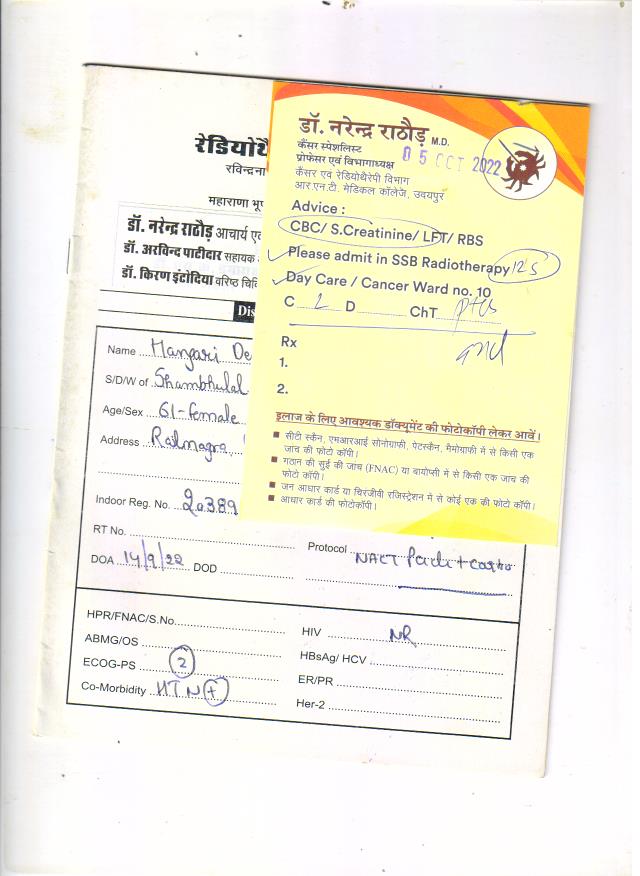 रेडियोथै
रविन्द्रना
महाराणा भू
डॉ. नरेन्द्र राठौड़ आचार्य ए
डॉ. अरविन्द पाटीदार सहायक
डॉ. किरण इंटोदिया वरिष्ठ चि
Dis
Name Hangari De
S/D/W of Shambhulal
Age/Sex 61-female
Address
Indoor Reg. No. 20389
RT No.
DOA 14/9/22 DOD
Protocol NACT Pacli + Carbo
HPR/FNAC/S.No.
ABMG/OS
ECOG-PS 2
Co-Morbidity HTN +
HIV NR
HBsAg/ HCV
ER/PR
Her-2
डॉ. नरेन्द्र राठौड़ M.D.
कैंसर स्पेशलिस्ट
प्रोफेसर एवं विभागाध्यक्ष
05 OCT 2022
कैंसर एवं रेडियोथैरेपी विभाग
आर.एन.टी. मेडिकल कॉलेज, उदयपुर
Advice :
CBC/ S.Creatinine/ LFT/ RBS
Please admit in SSB Radiotherapy
Day Care / Cancer Ward no. 10
C 2 D ChT
Rx
1.
2.
इलाज के लिए आवश्यक डॉक्यूमेंट की फोटोकॉपी लेकर आवें।
सीटी स्कैन, एमआरआई सोनोग्राफी, पेटस्कैन, मैमोग्राफी में से किसी एक
जांच की फोटो कॉपी।
गठान की सुई की जांच (FNAC) या बायोप्सी में से किसी एक जांच की
फोटो कॉपी।
जन आधार कार्ड या चिरंजीवी रजिस्ट्रेशन में से कोई एक की फोटो कॉपी।
आधार कार्ड की फोटोकॉपी।